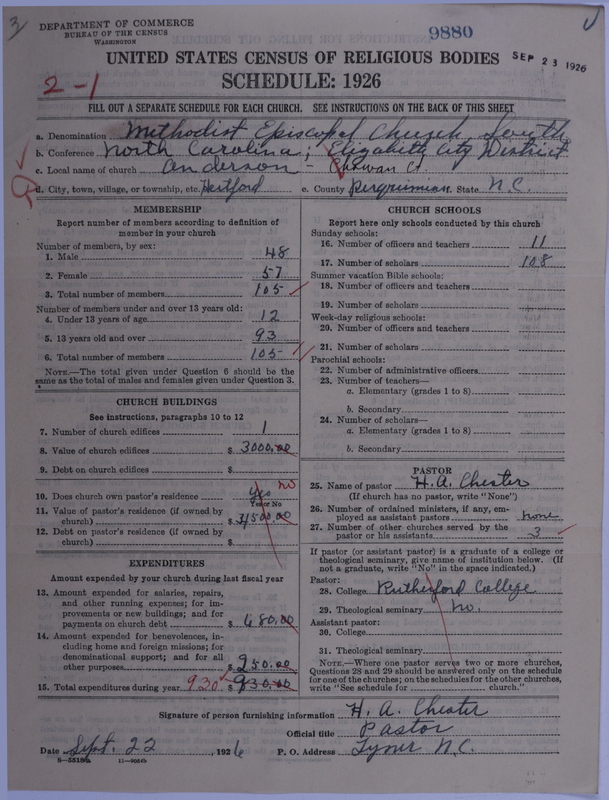 3
DEPARTMENT OF COMMERCE
BUREAU OF THE CENSUS
WASHINGTON
9880
UNITED STATES CENSUS OF RELIGIOUS BODIES
SEP 23 1926
SCHEDULE: 1926
2-1
FILL OUT A SEPARATE SCHEDULE FOR EACH CHURCH. SEE INSTRUCTIONS ON THE BACK OF THIS SHEET
a. Denomination Methodist Episcopal Church, South
b. Conference North Carolina; Elizabeth City District
c. Local name of church Anderson - Chowan Ct.
d. City, town, village, or township, etc. Hertford e. County Perquimian State N.C.
MEMBERSHIP
Report number of members according to definition of member in your church
Number of members, by sex:
1. Male 48
2. Female 57
3. Total number of members 105
Number of members under and over 13 years old:
4. Under 13 years of age 12
5. 13 years old and over 93
6. Total number of members 105
NOTE.—The total given under Question 6 should be the same as the total of males and females given under Question 3.
CHURCH BUILDINGS
See instructions, paragraphs 10 to 12
7. Number of church edifices 1
8. Value of church edifices $ 3000.00
9. Debt on church edifices $
10. Does church own pastor's residence yes no
Yes or No
11. Value of pastor's residence (if owned by church) $ 4500.00
12. Debt on pastor's residence (if owned by church) $
EXPENDITURES
Amount expended by your church during last fiscal year
13. Amount expended for salaries, repairs, and other running expenses; for improvements or new buildings; and for payments on church debt $ 680.00
14. Amount expended for benevolences, including home and foreign missions; for denominational support; and for all other purposes $ 250.00
15. Total expenditures during year 930 $ 930.00
CHURCH SCHOOLS
Report here only schools conducted by this church
Sunday schools:
16. Number of officers and teachers 11
17. Number of scholars 108
Summer vacation Bible schools:
18. Number of officers and teachers
19. Number of scholars
Week-day religious schools:
20. Number of officers and teachers
21. Number of scholars
Parochial schools:
22. Number of administrative officers
23. Number of teachers—
a. Elementary (grades 1 to 8)
b. Secondary
24. Number of scholars—
a. Elementary (grades 1 to 8)
b. Secondary
PASTOR
25. Name of pastor H. A. Chester
(If church has no pastor, write "None")
26. Number of ordained ministers, if any, employed as assistant pastors none
27. Number of other churches served by the pastor or his assistants 3
If pastor (or assistant pastor) is a graduate of a college or theological seminary, give name of institution below. (If not a graduate, write "No" in the space indicated.)
Pastor:
28. College Rutherford College
29. Theological seminary no.
Assistant pastor:
30. College
31. Theological seminary
NOTE.—Where one pastor serves two or more churches, Questions 28 and 29 should be answered only on the schedule for one of the churches; on the schedules for the other churches, write "See schedule for ........ church."
Signature of person furnishing information H. A. Chester
Official title Pastor
Date Sept. 22, 1926 P. O. Address Tyner N.C.